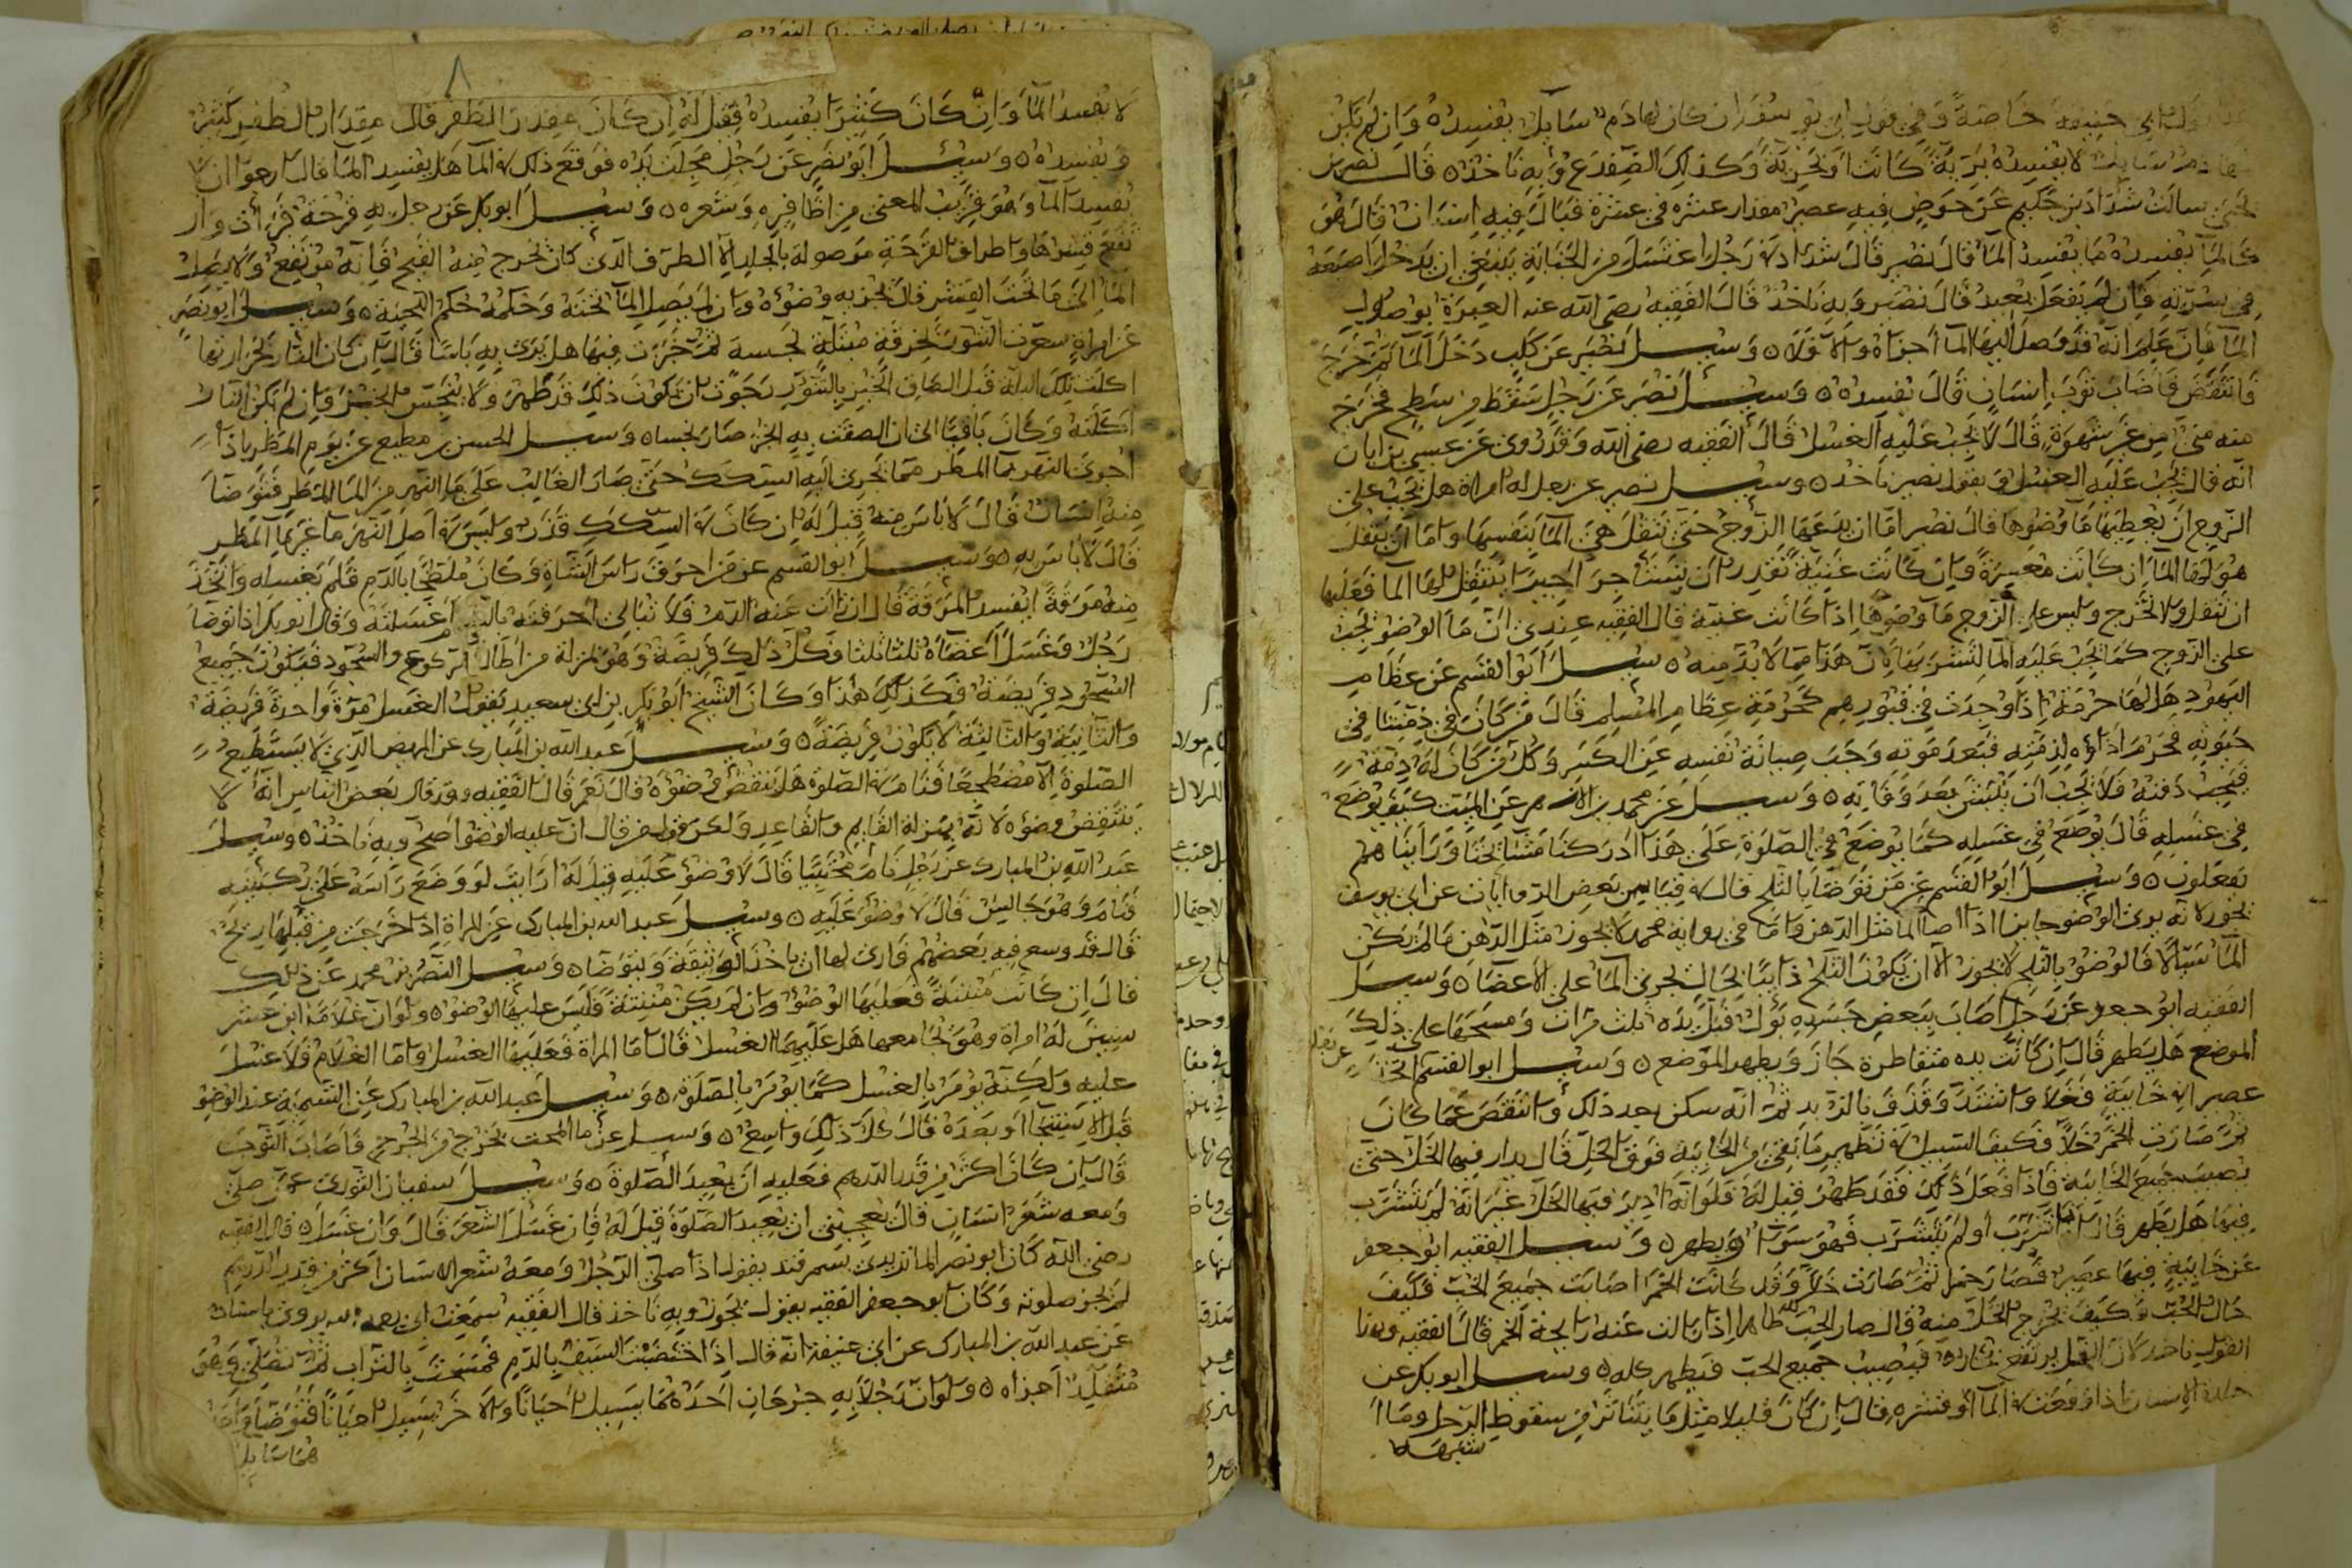 حنيفة خاصة وفي قول ابي يوسف ان كان لها دم سايل يفسده وان لم يكن
لها دم سايل لا يفسده برية كانت او بحرية وكذلك الضفدع وبه ناخذ ٥ قال نصير بن
يحيى سالت شداد بن حكيم عن حوض فيه عصير مقدار عشرة في عشرة فبال فيه انسان قال هو
كالما يفسده ما يفسد الما قال نصير قال شداد في رجل اغتسل من الجنابة ينبغي ان يدخل اصبعه
في سرته فان لم يفعل يعيد قال نصير وبه ناخذ قال الفقيه رضي الله عنه العبرة بوصول
الما فان علم انه قد وصل اليها الما اجزاه والا فلا ٥ وسيل نصير عن كلب دخل الما ثم خرج
فانتفض فاصاب ثوب انسان قال يفسده ٥ وسيل نصر عن رجل سقط من سطح فخرج
منه مني من غير شهوة قال لا يجب عليه الغسل قال الفقيه رضي الله وقد روي عن عيسى بن ابان
انه قال يجب عليه الغسل وبقول نصير ناخذ ٥ وسيل نصير عن رجل له امراة هل يجب على
الزوج ان يعطيها ما وضوها قال نصير اما ان يدعها الزوج حتى تنقل هي الما بنفسها واما ان ينقل
هو لها الما ان كانت معسرة وان كانت غنية تقدر ان تستاجر اجيرا ينقل لها الما فعليها
ان تنقل ولا تخرج وليس على الزوج ما وضوها اذا كانت غنية قال الفقيه عندي ان ما الوضو يجب
على الزوج كما يجب عليه الما لتشربه لان هذا مما لا بد منه ٥ سيل ابو القسم عن عظام
اليهود هل لها حرمة اذا وجدت في قبورهم كحرمة عظام المسلم قال من كان في ذمتنا في
حيوته محرم اذاؤه لذمته فبعد موته وجب صيانة نفسه عن الكسر وكل من كان له ذمة
فيجب دفنه فلا يجب ان ينبش بعد وفاته ٥ وسيل عن محمد بن الازهر عن الميت كيف يوضع
في غسله قال يوضع في غسله كما يوضع في الصلوة على هذا ادركنا مشايخنا ورايناهم
يفعلون ٥ وسيل ابو القسم عمن توضا بالثلج قال في بعض الروايات عن ابي يوسف
يجوز لانه يرى الوضو جايزا اذا اصاب الما مثل الدهن واما في رواية محمد لا يجوز مثل الدهن ما لم يكن
الما سيالا فالوضو بالثلج لا يجوز الا ان يكون الثلج ذايبا بحال يجري الما على الاعضا ٥ وسيل
الفقيه ابو جعفر عن رجل اصاب ببعض جسده بول فبل يده ثلث مرات ومسحها على ذلك
الموضع هل يطهر قال ان كانت يده متقاطرة جاز ويطهر الموضع ٥ وسيل ابو القسم
عصير في خابية فغلا واشتد وقذف بالزبد ثم انه سكن بعد ذلك وانتقص عما كان
ثم صارت الخمر خلا فكيف السبيل في تطهير ما بقي من الخابية فوق الخل قال يدار فيها الخل حتى
يصيب جميع الخابية فاذا فعل ذلك فقد طهر قيل له فلو انه ادير فيها الخل غير انه لم يتشرب
فيها هل يطهر قال تشرب او لم يتشرب فهو سوا ويطهر ٥ وسيل الفقيه ابو جعفر
عن خابية فيها عصير فصار خمرا ثم صارت خلا وقد كانت الخمر اصابت جميع الحب فكيف
حال الحب وكيف يخرج الخل منه قال صار الحب كله طاهرا اذا زالت عنه رايحة الخمر قال الفقيه وبهذا
القول ناخذ يرتفع بخاره فيصيب جميع الحب فيطهر كله ٥ وسيل ابو بكر عن
جلدة الانسان اذا وقعت في الما او قشره قال ان كان قليلا مثل ما يتناثر من سقوط الرجل وما
اشبهه
٨
لا يفسد الما وان كان كثيرا يفسده فقيل له ان كان مقدر الظفر قال مقدار الظفر كثير
ويفسده ٥ وسيل ابو نصر عن رجل مجلت يده فوقع ذلك في الما هل يفسد الما قال ارجو ان لا
يفسد الما وهو قريب المعنى من اظافره وشعره ٥ وسيل ابو بكر عن رجل به قرحة فبرأت و
ارتفع قشرها واطراف القرحة موصولة بالجلد الا الطرف الذي كان يخرج منه القيح فانه مرتفع ولا يصل
الما الى ما تحت القشر قال يجزيه وضوه وان لم يصل الما تحته وحكمه حكم اللحية ٥ وسيل ابو نصر
عن امراة سعرت التنور بخرقة مبتلة نجسة ثم خبزت فيها هل يرى به باسا قال ان كان النار بحرارتها
اكلت تلك البلة قبل الصاق الخبز بالتنور رجوت ان يكون ذلك قد طهر ولا يتنجس الخبز وان لم تكن النار
اكلته وكان باقيا الى ان الصقت به الخبز صار نجسا ٥ وسيل الحسن بن مطيع عن يوم المطر اذا
اجرى النهر بما المطر مما يجري اليه السكك حتى صار الغالب على ما النهر من الما المطر فتوضا
منه انسان قال لا باس منه قيل له ان كان في السكك قذر وليس في اصل النهر ما غير ما المطر
قال لا باس به ٥ وسيل ابو القسم عن من احرق راس الشاة وكان ملطخا بالدم فلم يغسله واتخذ
منه مرقة ايفسد المرقة قال ان زالت عنه الدم فلا تبالي احرقته بالنار او غسلته وقال ابو بكر اذا توضا
رجل وغسل اعضاه ثلثا ثلثا فكل ذلك فريضة وهو بمنزلة من اطال الركوع والسجود فيكون جميع
السجود فريضة فكذلك هذا وكان الشيخ ابو بكر بن ابي سعيد يقول الغسل مرة واحدة فريضة
والثانية والثالثة لا يكون فريضة ٥ وسيل عبد الله بن المبارك عن المريض الذي لا يستطيع
الصلوة الا مضطجعا فنام في الصلوة هل ينتقض وضوه قال نعم قال الفقيه وقد قال بعض الناس انه لا
ينتقض وضوه لانه بمنزلة القايم والقاعد ولكن قول من قال ان عليه الوضو اصح وبه ناخذ ٥ وسيل
عبد الله بن المبارك عن رجل نام محتبيا قال لا وضو عليه قيل له ارايت لو وضع راسه على ركبتيه
فنام وهو جالس قال لا وضو عليه ٥ وسيل عبد الله بن المبارك عن المراة اذا خرجت من قبلها ريح
قال قد وسع فيه بعضهم فارى لها ان ياخذ الوثيقة وتوضا ٥ وسيل النضر بن محمد عن ذلك
قال ان كانت منتنة فعليها الوضو وان لم يكن منتنة فليس عليها الوضو ٥ ولو ان غلاما ابن عشر
سنين له امراة وهو يجامعها هل عليهما الغسل قال اما المراة فعليها الغسل واما الغلام فلا غسل
عليه ولكنه يومر بالغسل كما يومر بالصلوة ٥ وسيل عبد الله بن المبارك عن التسمية عند الوضو
قبل الاستنجا او بعده قال كل ذلك واسع ٥ وسيل عن ما البحت يخرج من الجرح فاصاب الثوب
قال ان كان اكثر من قدر الدرهم فعليه ان يعيد الصلوة ٥ وسيل سفيان الثوري عمن صلى
ومعه شعر انسان قال يعجبني ان يعيد الصلوة قيل له فان غسل الشعر قال وان غسل ٥ قال الفقيه
رضي الله كان ابو نصر الماتريدي بسمرقند يقول اذا صلى الرجل ومعه شعر الانسان اكثر من قدر الدرهم
لم تجز صلوته وكان ابو جعفر الفقيه يقول تجوز وبه ناخذ قال الفقيه سمعت ابي رحمه الله يروي باسناده
عن عبد الله بن المبارك عن ابي حنيفة انه قال اذا اختضبت السيف بالدم فمسحت بالتراب ثم تصلي وهو
متقلد اجزاه ٥ ولو ان رجلا به جرحان احدهما يسيل احيانا والاخر يسيل احيانا فتوضا واحد
هما سايل